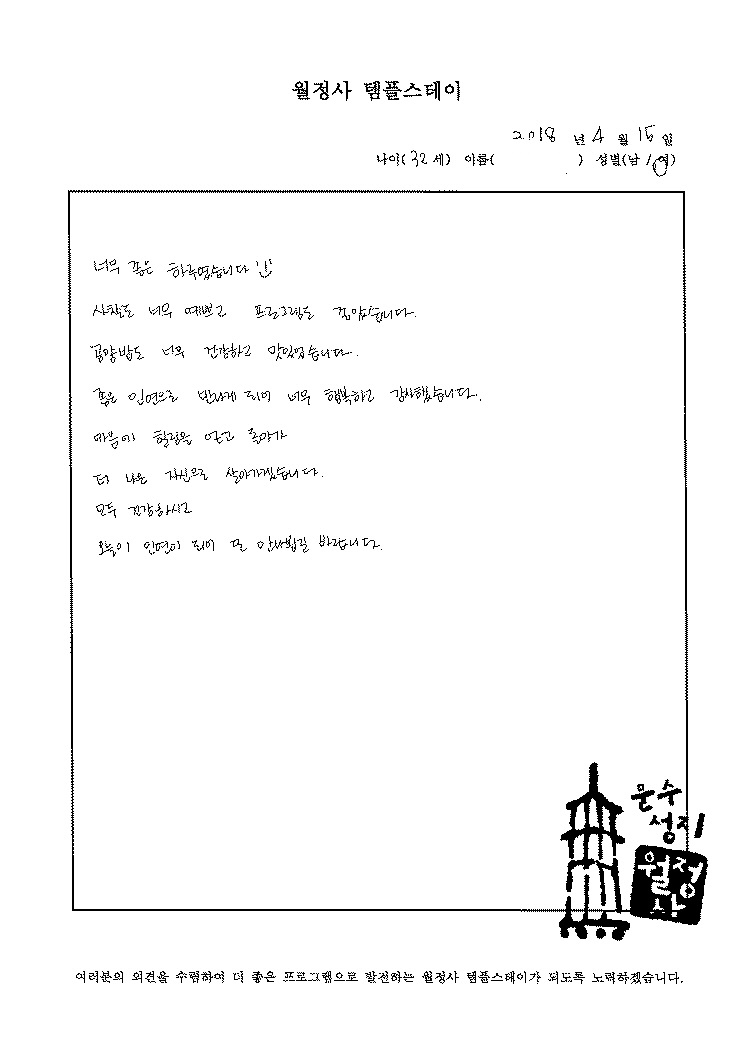 월정사 템플스테이
2018 년 4 월 15 일
나이( 32 세) 이름( ) 성별(남 / 여)
너무 좋은 하루였습니다
사찰도 너무 예쁘고 프로그램도 좋았습니다.
공양밥도 너무 건강하고 맛있었습니다.
좋은 인연으로 만나게 되어 너무 행복하고 감사했습니다.
마음에 힐링을 얻고 돌아가
더 나은 자신으로 살아가겠습니다.
모두 건강하시고
오늘이 인연이 되어 또 만나뵙길 바랍니다.
문수
성지
월정
사
여러분의 의견을 수렴하여 더 좋은 프로그램으로 발전하는 월정사 템플스테이가 되도록 노력하겠습니다.